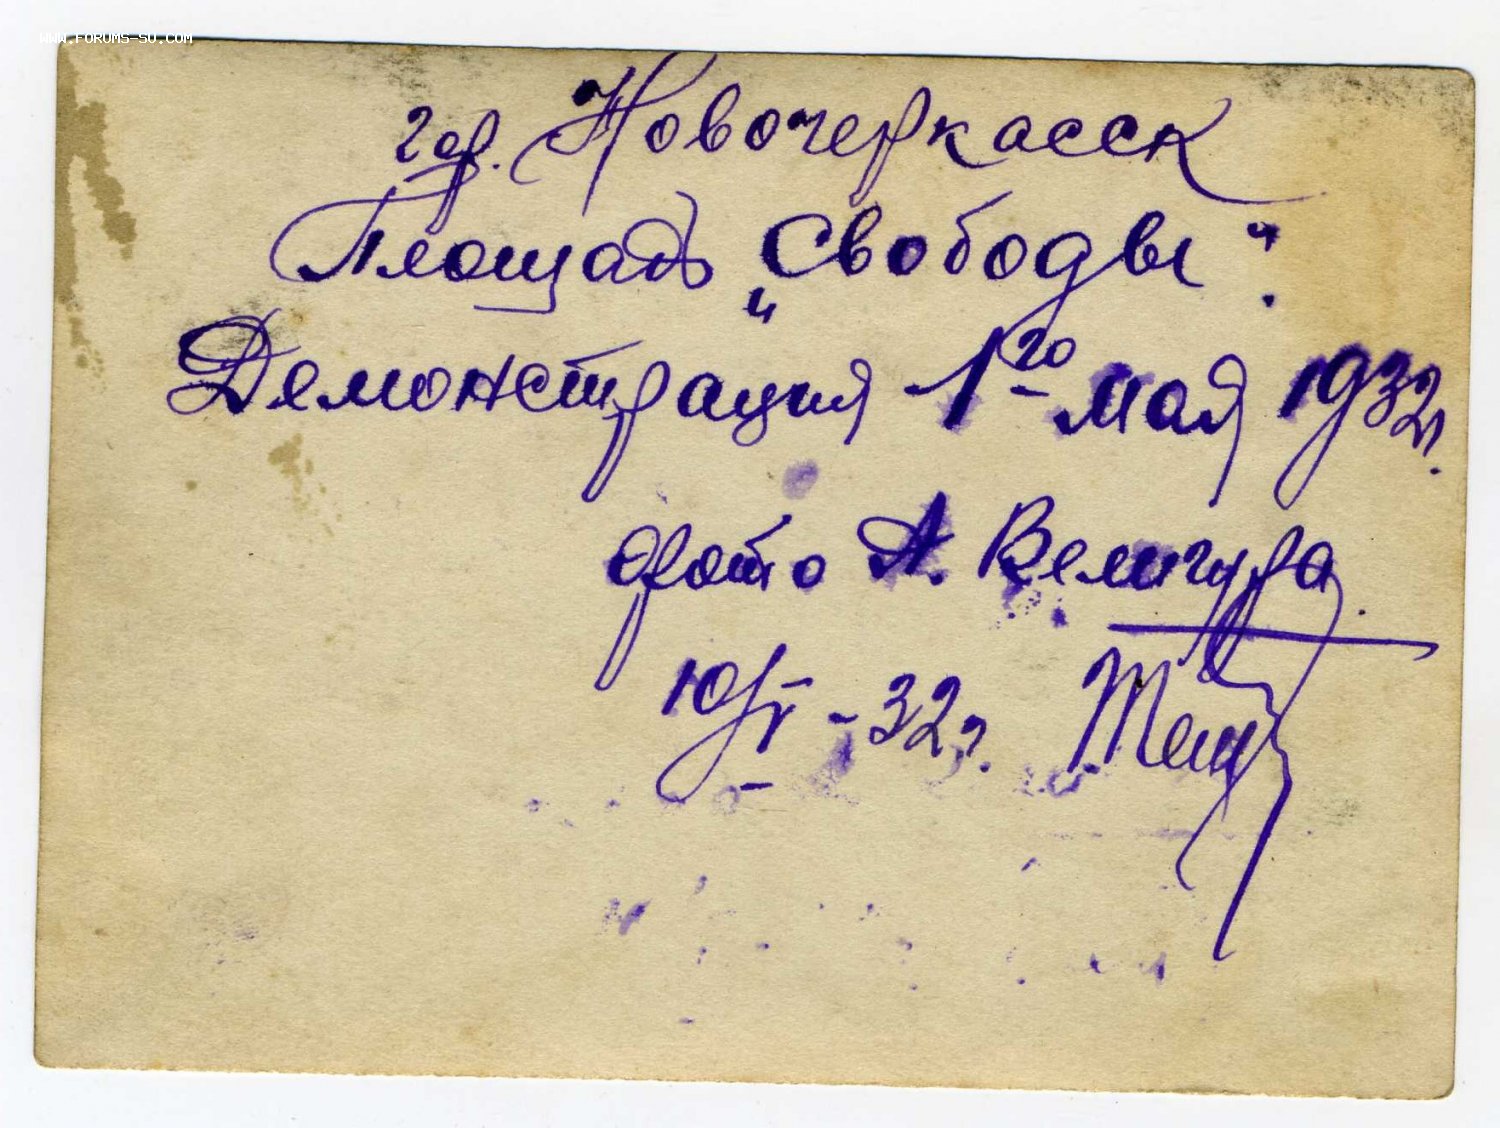 WWW.FORUMS-SU.COM
гор. Новочеркасск
Площадь „Свободы“.
Демонстрация 1го мая 1932г.
фото А. Велигура
10/V-32г.